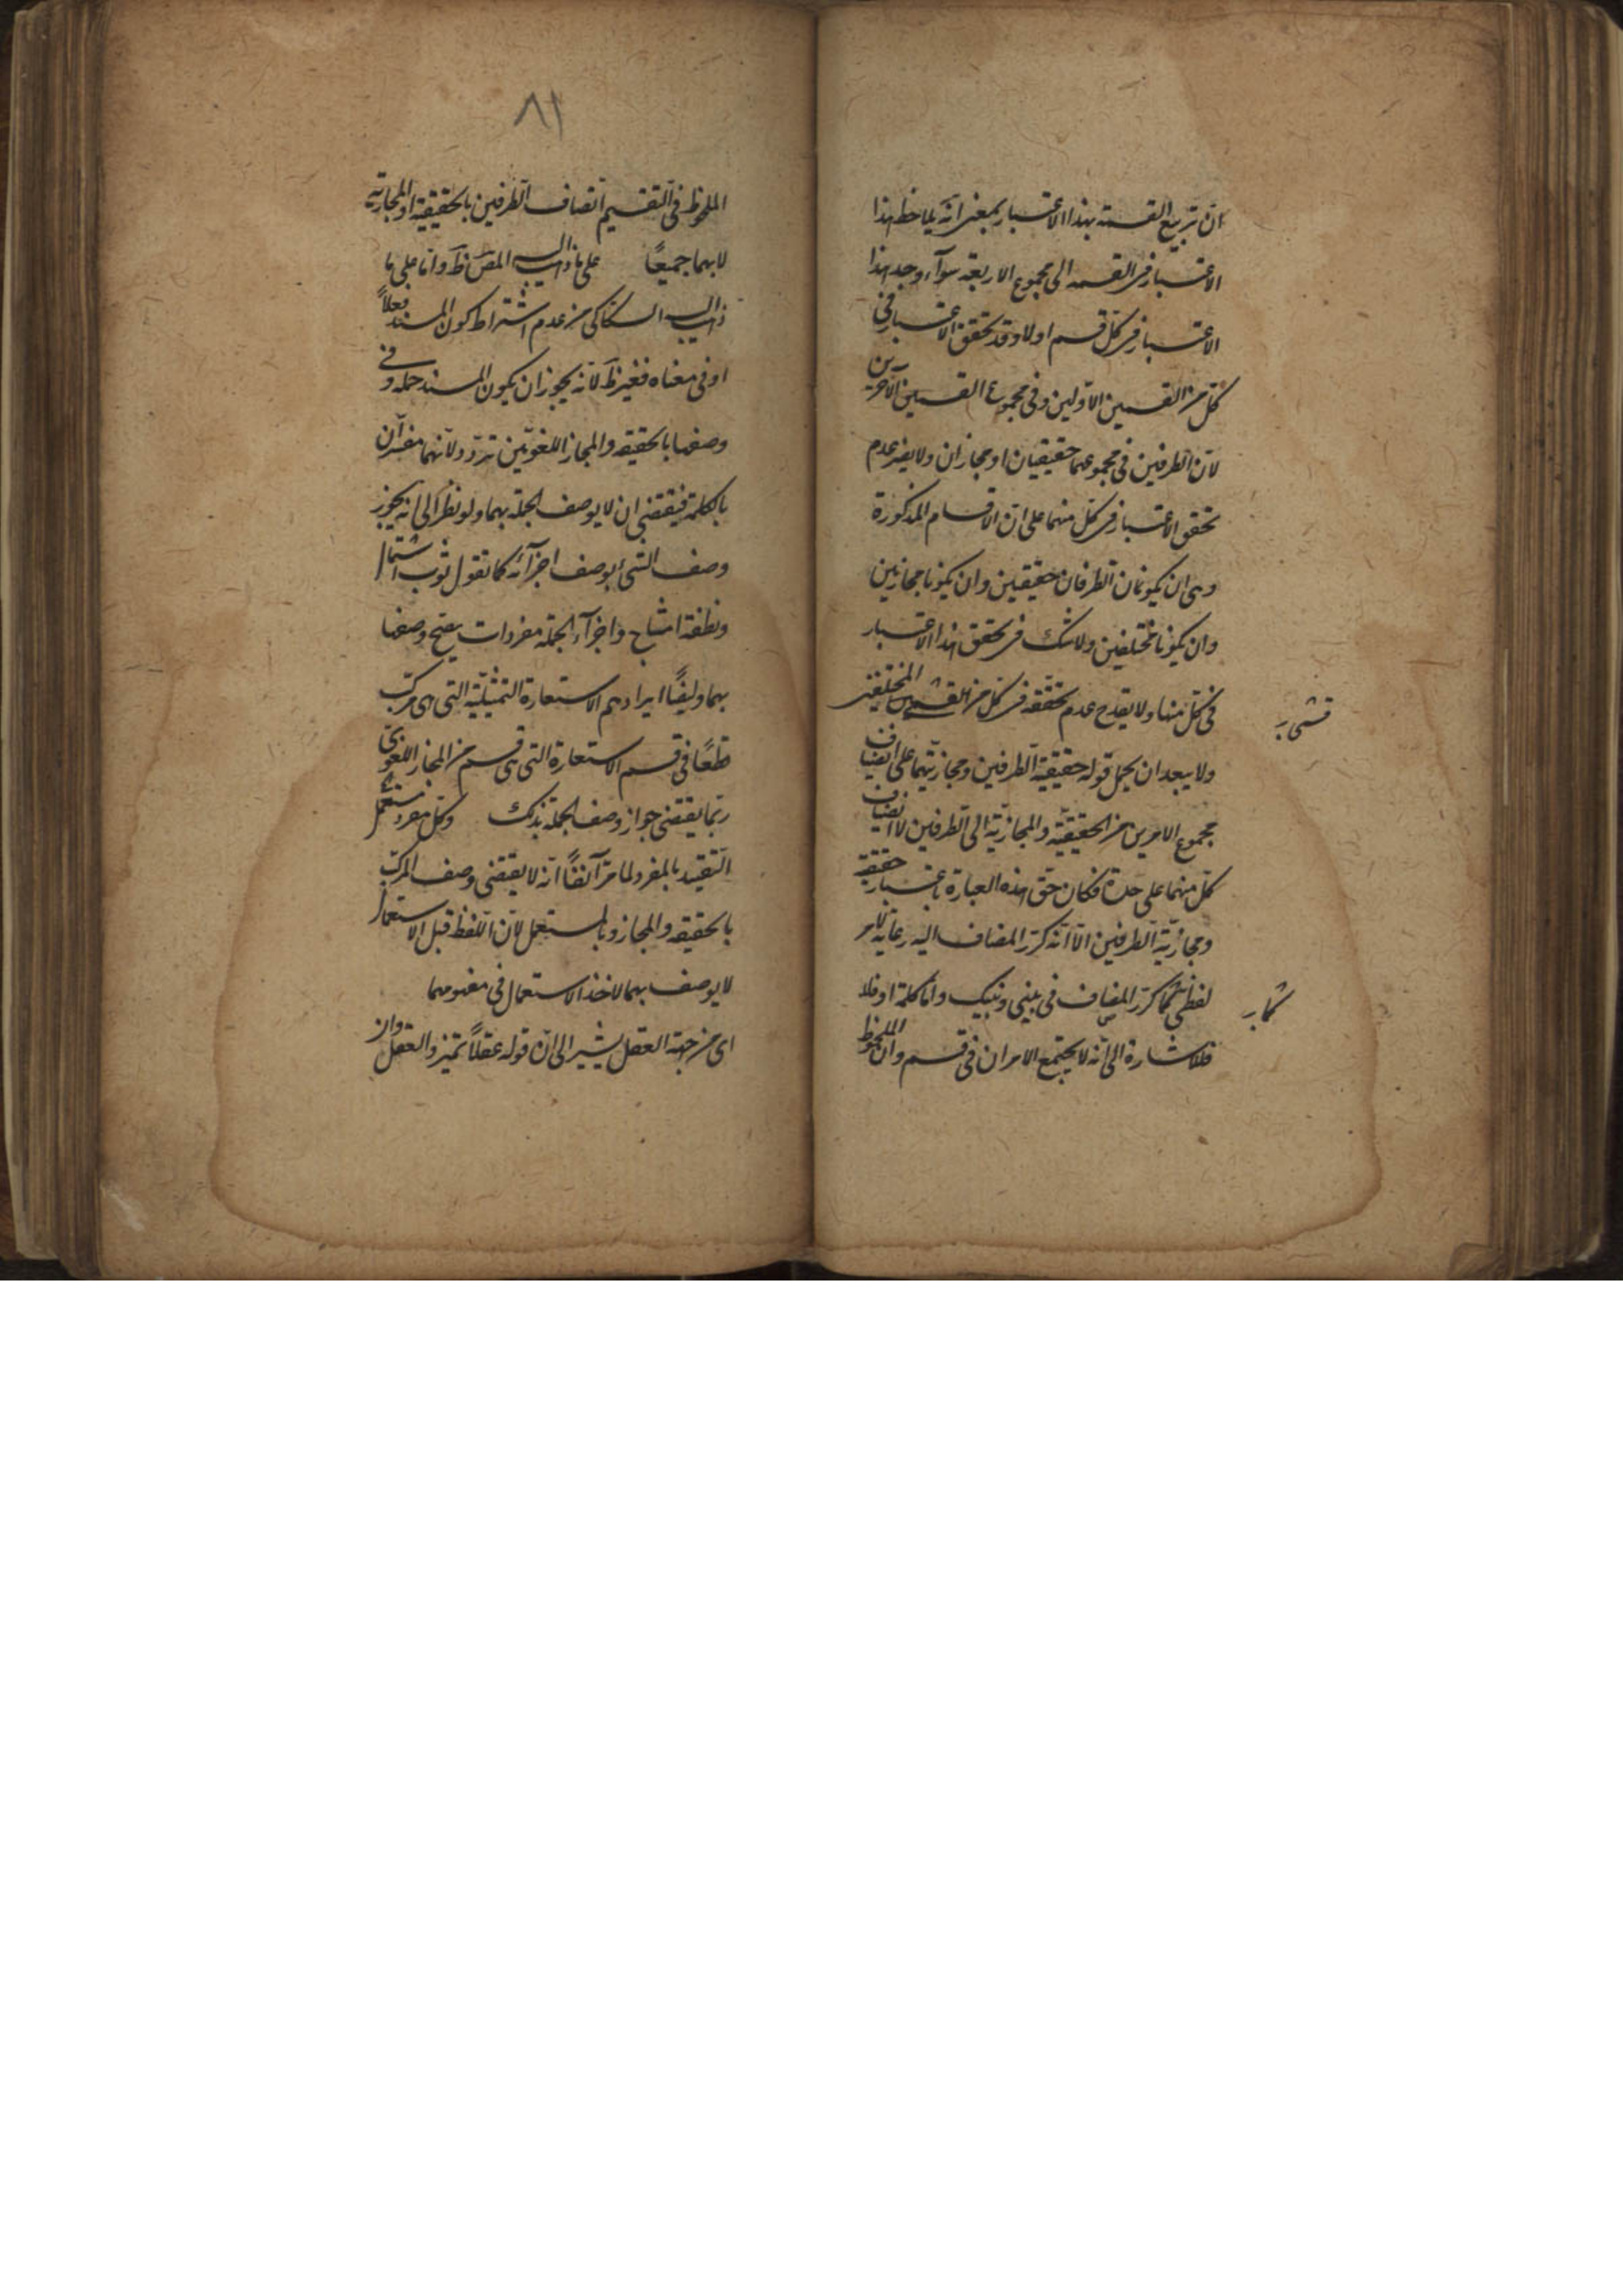 ان تربيع القسمة بهذا الاعتبار بمعنى انه يلاحظ هذا
الاعتبار فى القسمه الى مجموع الاربعة سوآء وجد هذا
الاعتبار فى كل قسم اولا وقد تحقق الاعتبار فى
كل من القسمين الاولين وفى مجموع القسمين الآخرين
لان الطرفين فى مجموعهما حقيقيان او مجازان ولا يضر عدم
تحقق الاعتبار فى كل منهما على ان الاقسام المذكورة
وهى ان يكونان الطرفان حقيقين وان يكونا مجازيين
وان يكونا مختلفين ولا شك فى تحقق هذا الاعتبار
فى كل منها ولا يقدح عدم تحققه فى كل من القسمين المختلفين
قشى بر
ولا يبعد ان يحمل قوله حقيقية الطرفين ومجازيتهما على انضياف
مجموع الامرين من الحقيقية والمجازية الى الطرفين لا انضياف
كل منهما على حدة فكان حق هذه العبارة باعتبار حقيقة
ومجازية الطرفين الا انه كرر المضاف اليه رعاية لامر
لفظى كما كرر المضاف فى بينى وبينك واما كلمة او فلا
كمابر
فللاشارة الى انه لا يجتمع الامران فى قسم وان الملحوظ
٨٢
الملحوظ فى التقسيم اتصاف الطرفين بالحقيقية او المجازية
لا بهما جميعًا على ما ذهب اليه المص ظ واما على ما
ذهب اليه السكاكى من عدم اشتراط كون المسند فعلاً
او فى معناه فغير ظ لانه يجوز ان يكون المسند جمله وفى
وصفها بالحقيقه والمجاز اللغويين تردد ولانهما مفسران
بالكلمة فيقتضى ان لا يوصف الجملة بهما ولو نظر الى انه يجوز
وصف الشئ بوصف اجزآئه كما تقول ثوب اسمال
ونطفة امشاج واجزآء الجملة مفردات يصح وصفها
بهما وايضًا ايرادهم الاستعارة التمثيلية التى هى مركب
قطعًا فى قسم الاستعارة التى هى قسم من المجاز اللغوى
ربما يقتضى جواز وصف الجملة بذلك وكل مفرد مستعمل
التقييد بالمفرد لما مر آنفًا انه لا يقتضى وصف المركب
بالحقيقه والمجاز وبالمستعمل لان اللفظ قبل الاستعمال
لا يوصف بهما لاخذ الاستعمال فى مفهومهما
اى من جهة العقل يشير الى ان قوله عقلاً تميز والعقل وان